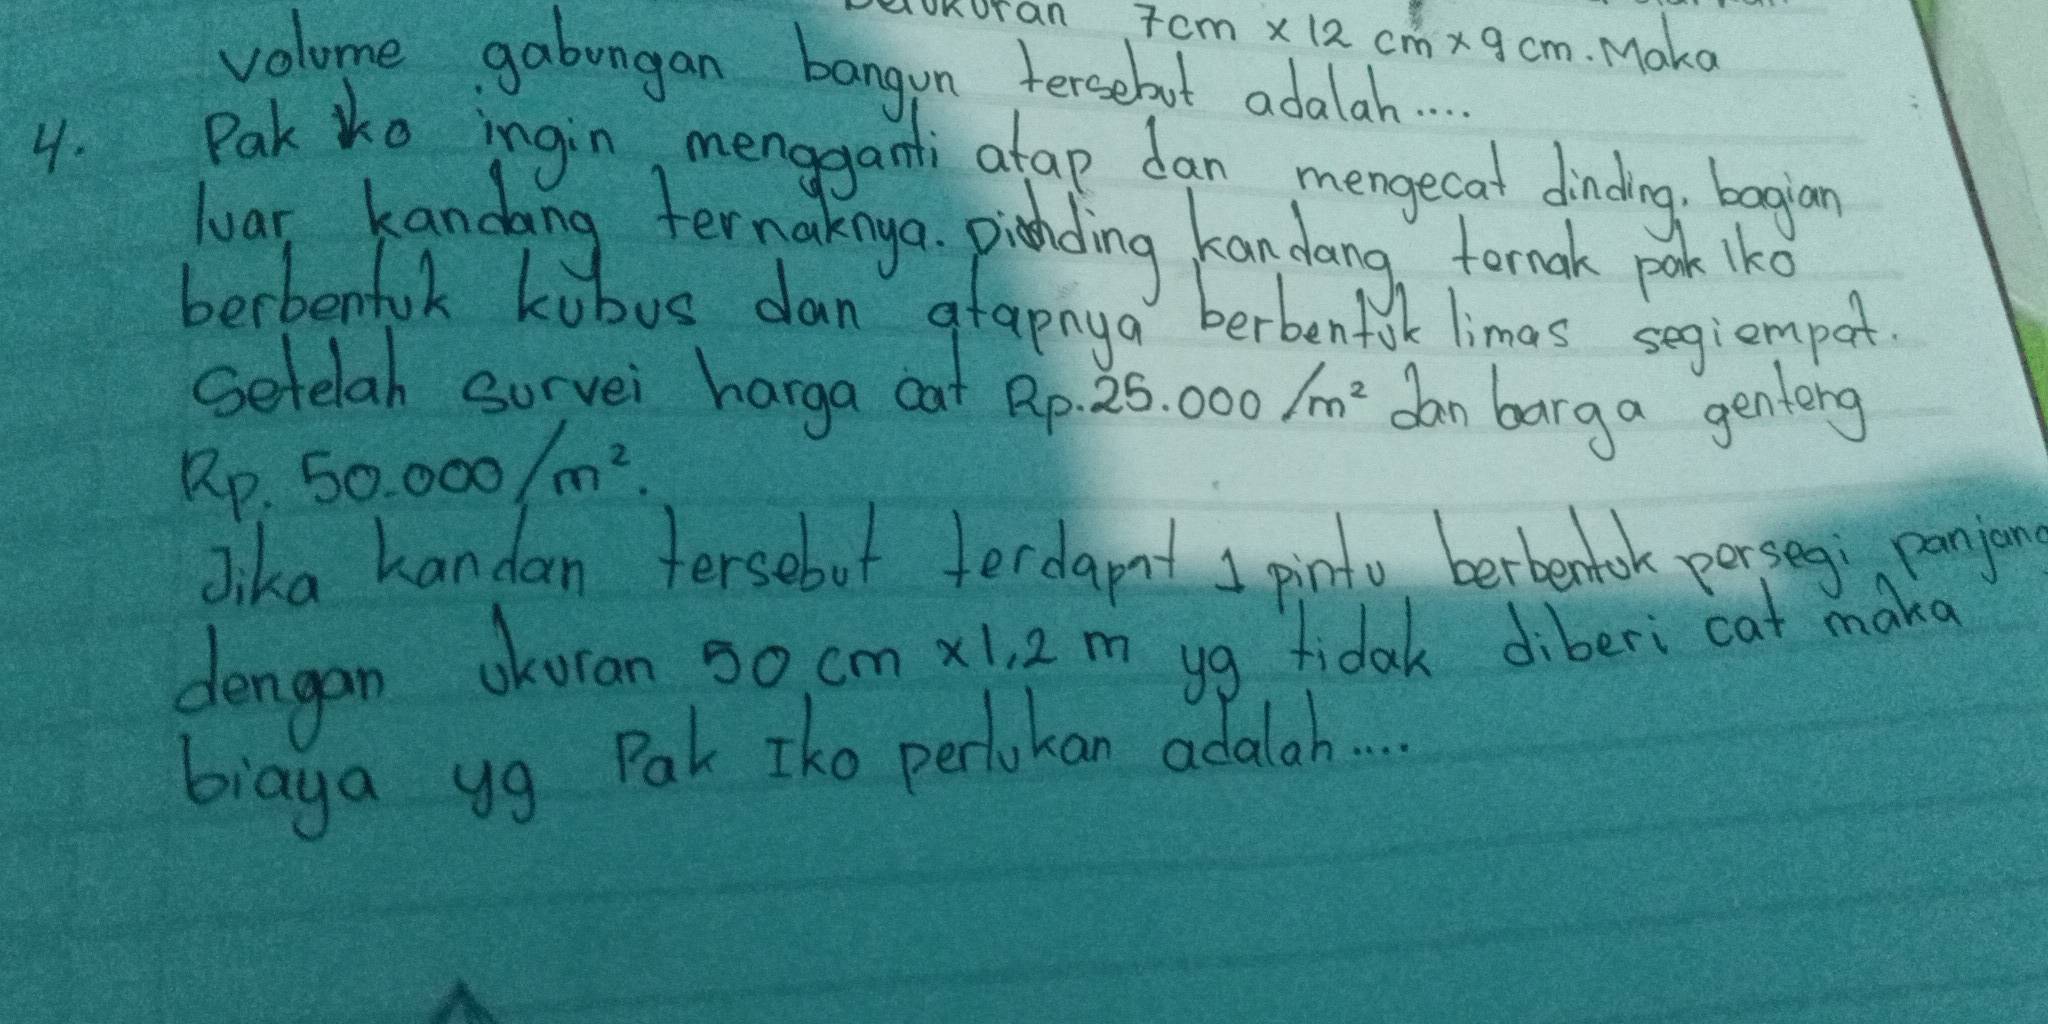 7cm x 12 cm x 9 cm. Maka
volume gabungan bangun tersebut adalah....
4. Pak Iko ingin mengganti atap dan mengecat dinding, bagian
luar kandang ternaknya. Dinding kandang ternak pak Iko
berbentuk kubus dan atapnya berbentuk limas segiempat.
Setelah survei harga cat Rp.25.000/m² dan barga genteng
Rp. 50.000/m².
Jika kandan tersebut terdapat 1 pintu berbentuk persegi panjang
dengan ukuran 50 cm x 1,2 m yg tidak diberi cat maka
biaya yg Pak Iko perlukan adalah....